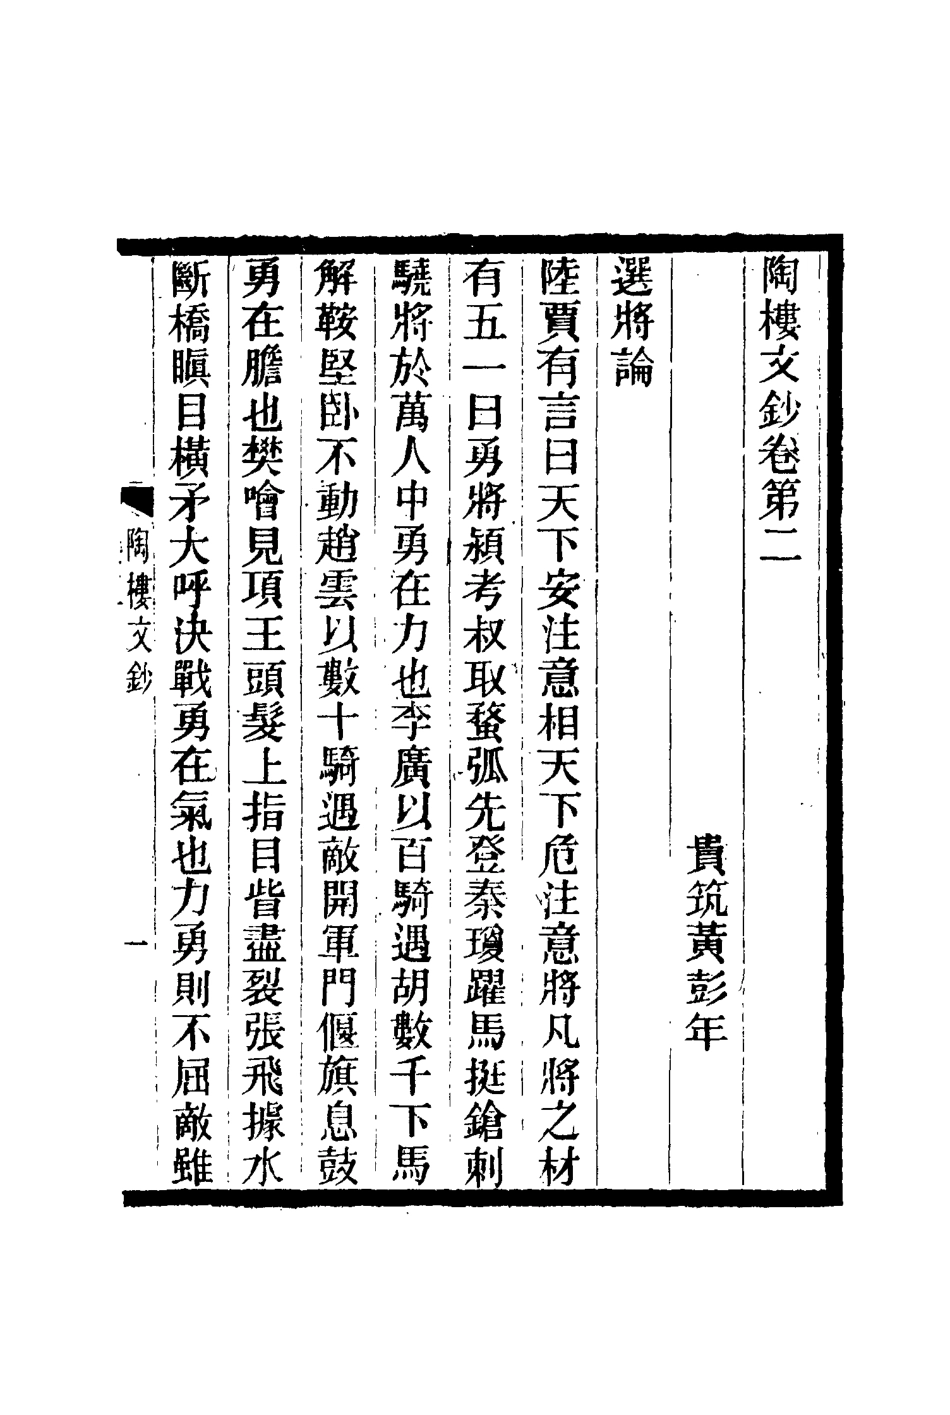 陶樓文鈔卷第二
貴筑黃彭年
選將論
陸賈有言曰天下安注意相天下危注意將凡將之材
有五一曰勇將潁考叔取蝥弧先登秦瓊躍馬挺鎗刺
驍將於萬人中勇在力也李廣以百騎遇胡數千下馬
解鞍堅卧不動趙雲以數十騎遇敵開軍門偃旗息鼓
勇在膽也樊噲見項王頭髮上指目眥盡裂張飛據水
斷橋瞋目橫矛大呼決戰勇在氣也力勇則不屈敵雖
陶樓文鈔
一